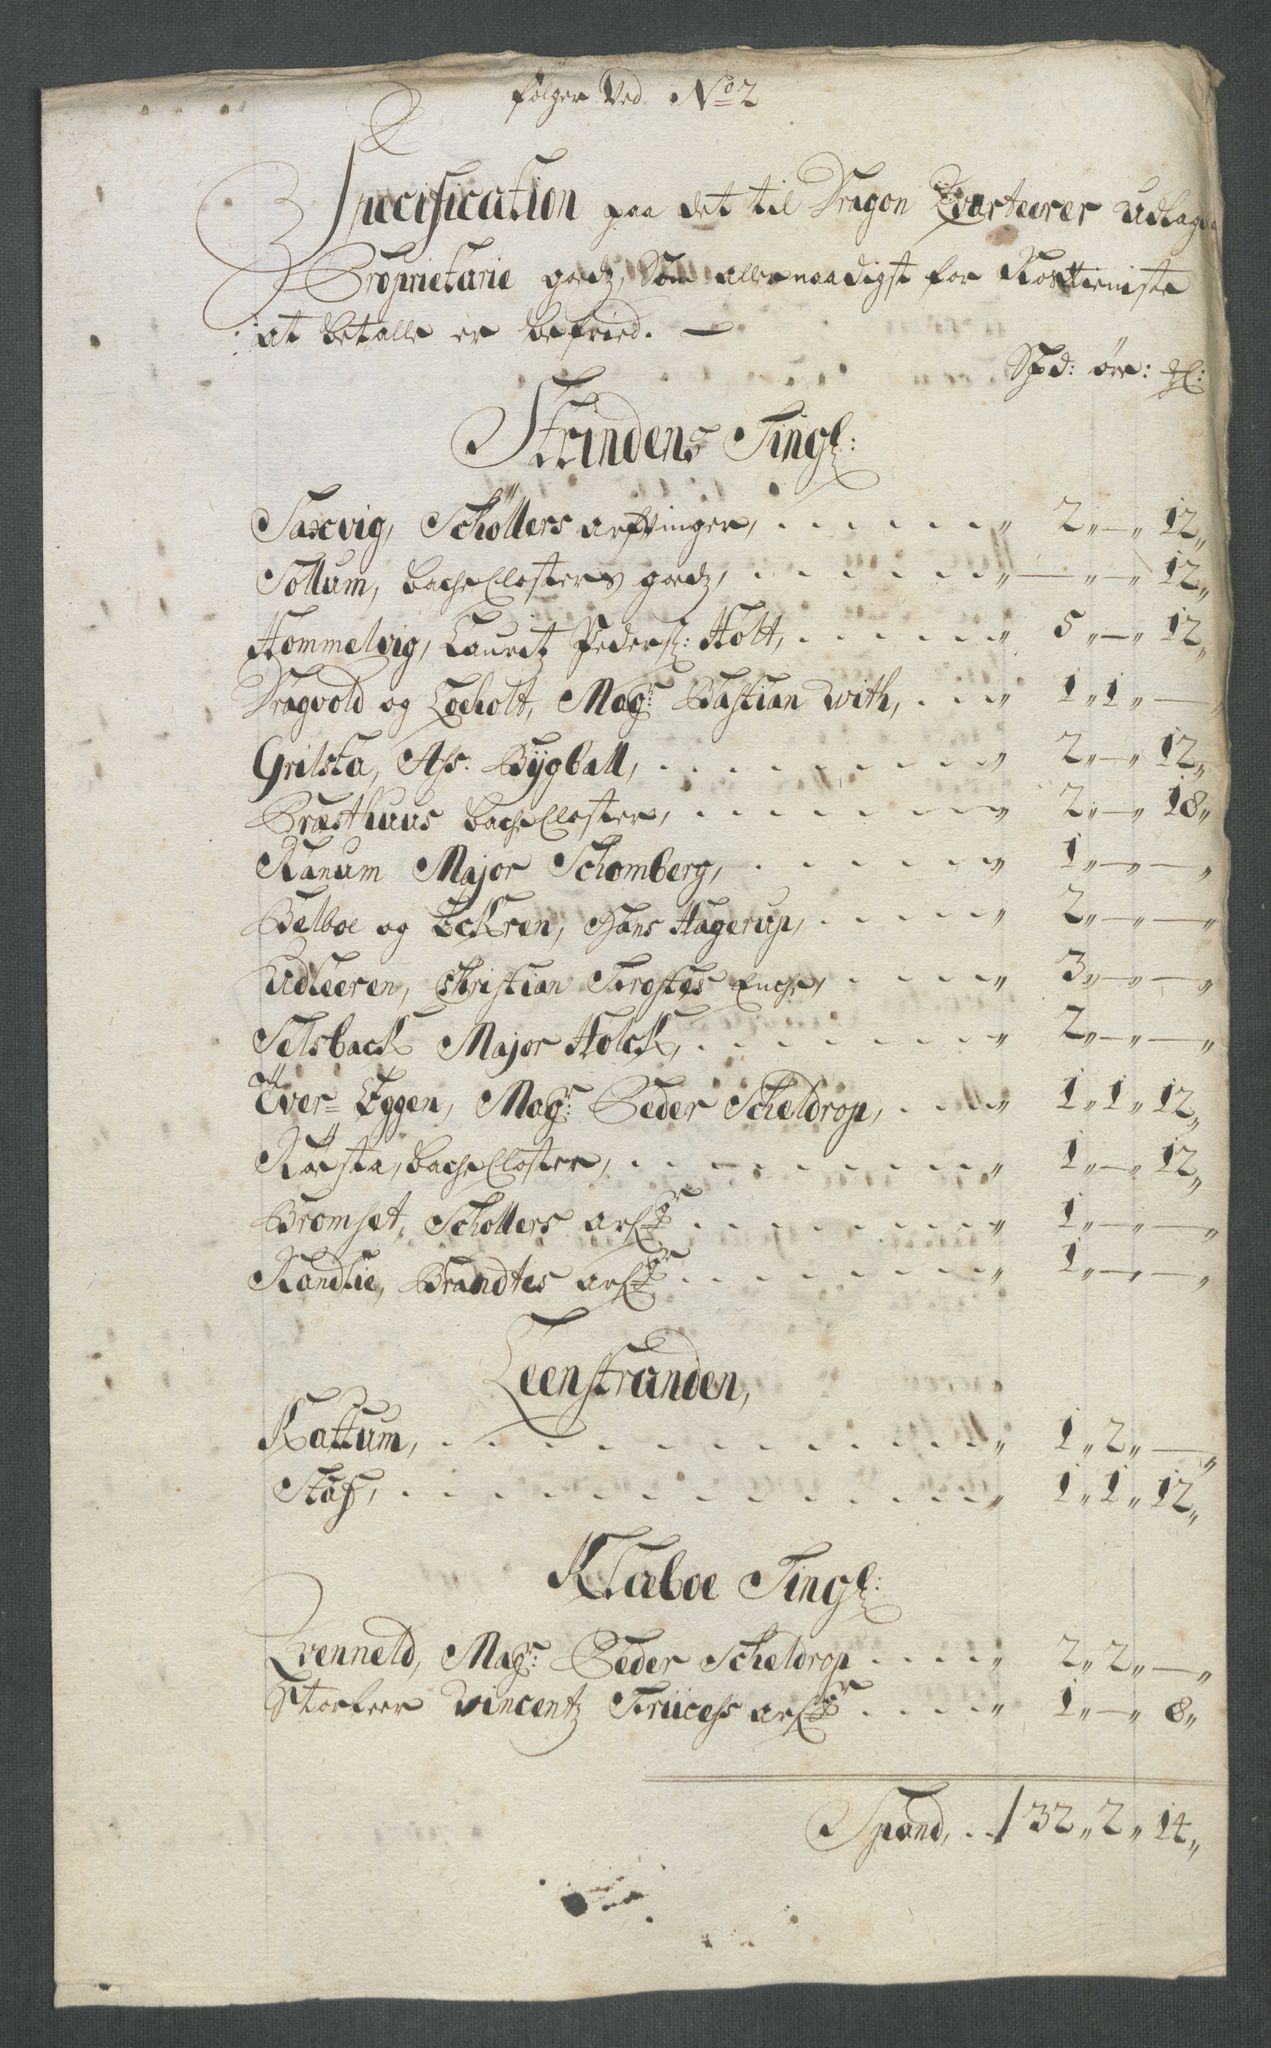 følger Ved No 2
Specification paa det til Dragon Qvarteerer Udlagde
Proprietarie godtz, Som allernaadigst for Rosstieniste
at betalle er befried. —
Spd: öre: ß:
Strindens Tingl:
Saxvig, Schöllers arfvinger, . . . . . . „ 2„ — „ 12„
Sollum, bache Closters godtz, . . . . . . „ — „ — „ 12„
Hommelvig, Lauritz Peders: Holt, . . . . . . „ 5„ — „ 12„
Dragvold og Loeholt, Magr: Bastian With, . . . „ 1„ 1„ — „
Grilsta, Ass: Bÿgball, . . . . . . . . . „ 2„ — „ 12„
Præsthuus bache Closter, . . . . . . . . „ 2„ — „ 18„
Ranum Major Schomberg, . . . . . . „ 1„ — „ — „
Belboe og Eckren, Hans Hagerup, . . . . . „ 2„ — „ — „
Udleeren, Christian Trostes Enche, . . . . „ 3„ — „ — „
Selsback Major Holck, . . . . . . . . „ 2„ — „ — „
Över= Eggen, Magr: Peder Scheldrop, . . . . „ 1„ 1„ 12„
Röesta, bache Closter, . . . . . . . . . . „ 1„ — „ 12„
Bromset, Schöllers arfr . . . . . . . . „ 1„ — „ — „
Randlie, Brandtes arfr . . . . . . . . „ 1„ — „ — „
Leenstranden,
Kattum, . . . . . . . . . . . . . „ 1„ 2„ — „
Stöf, . . . . . . . . . . . . . . „ 1„ 1„ 12„
Klæboe Tingl:
Qvenneld, Magr: Peder Scheldrop . . . . „ 2„ 2„ — „
Storleer Vincentz Trücess arfr . . . . „ 1„ — „ 8„
Spand, . . / 32„ 2„ 14„